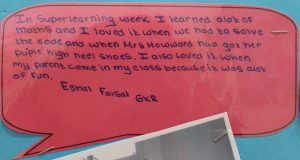 In Superlearning week I learned alot of
maths and I loved it when we had to solve
the code and when Mrs Howward had got her
puple high heel shoes. I also loved it when
my parent came in my class because it was alot
of fun.
Eshal Faisal
6KR